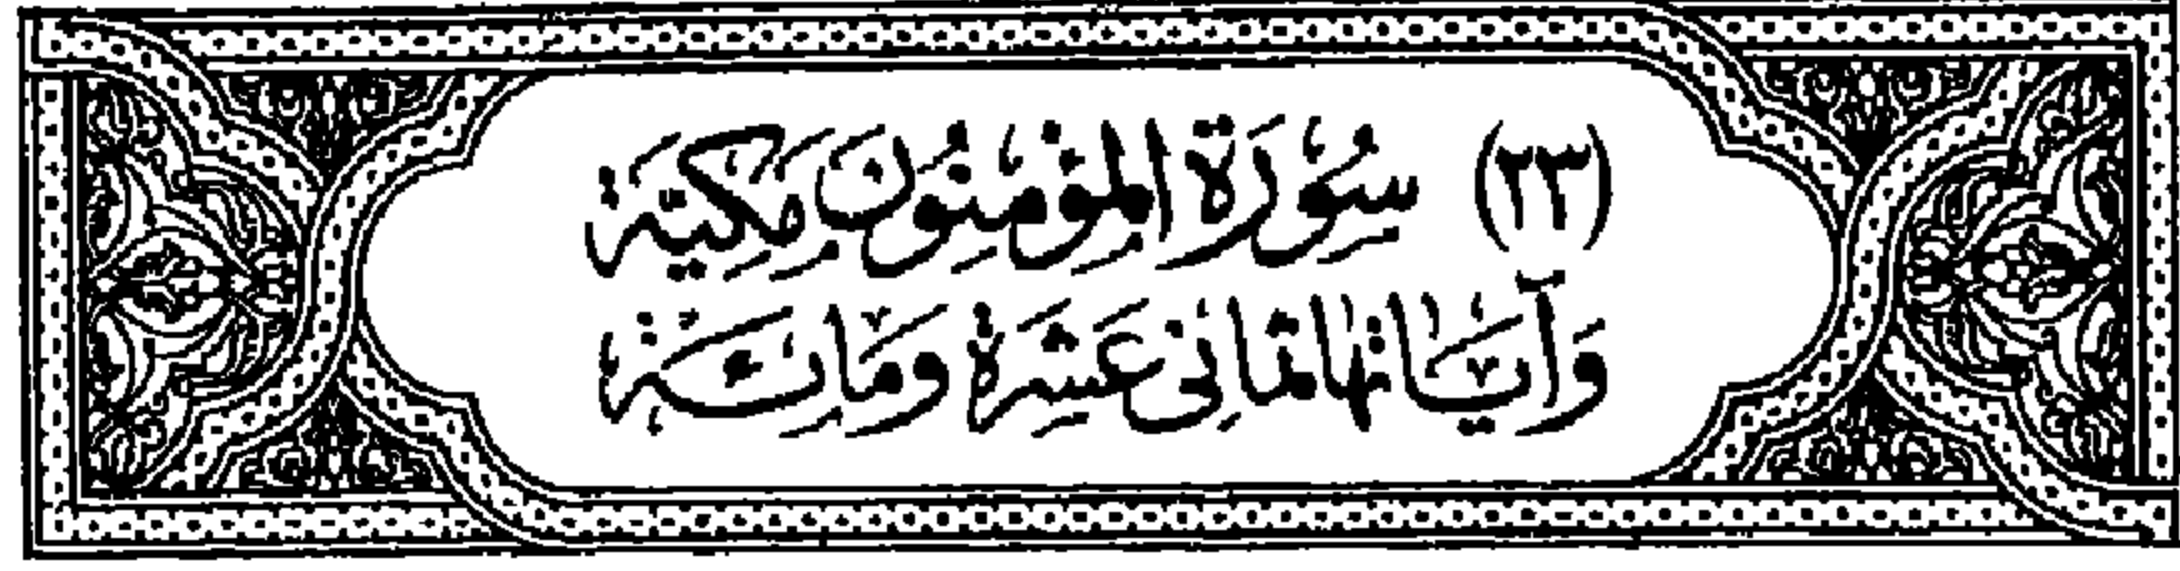 (٢٣) سُورَةُ المُؤمِنُونَ مَكِيَّة
وَآيَاتُهَا ثَمَانِي عَشِرَةَ وَمَائَة